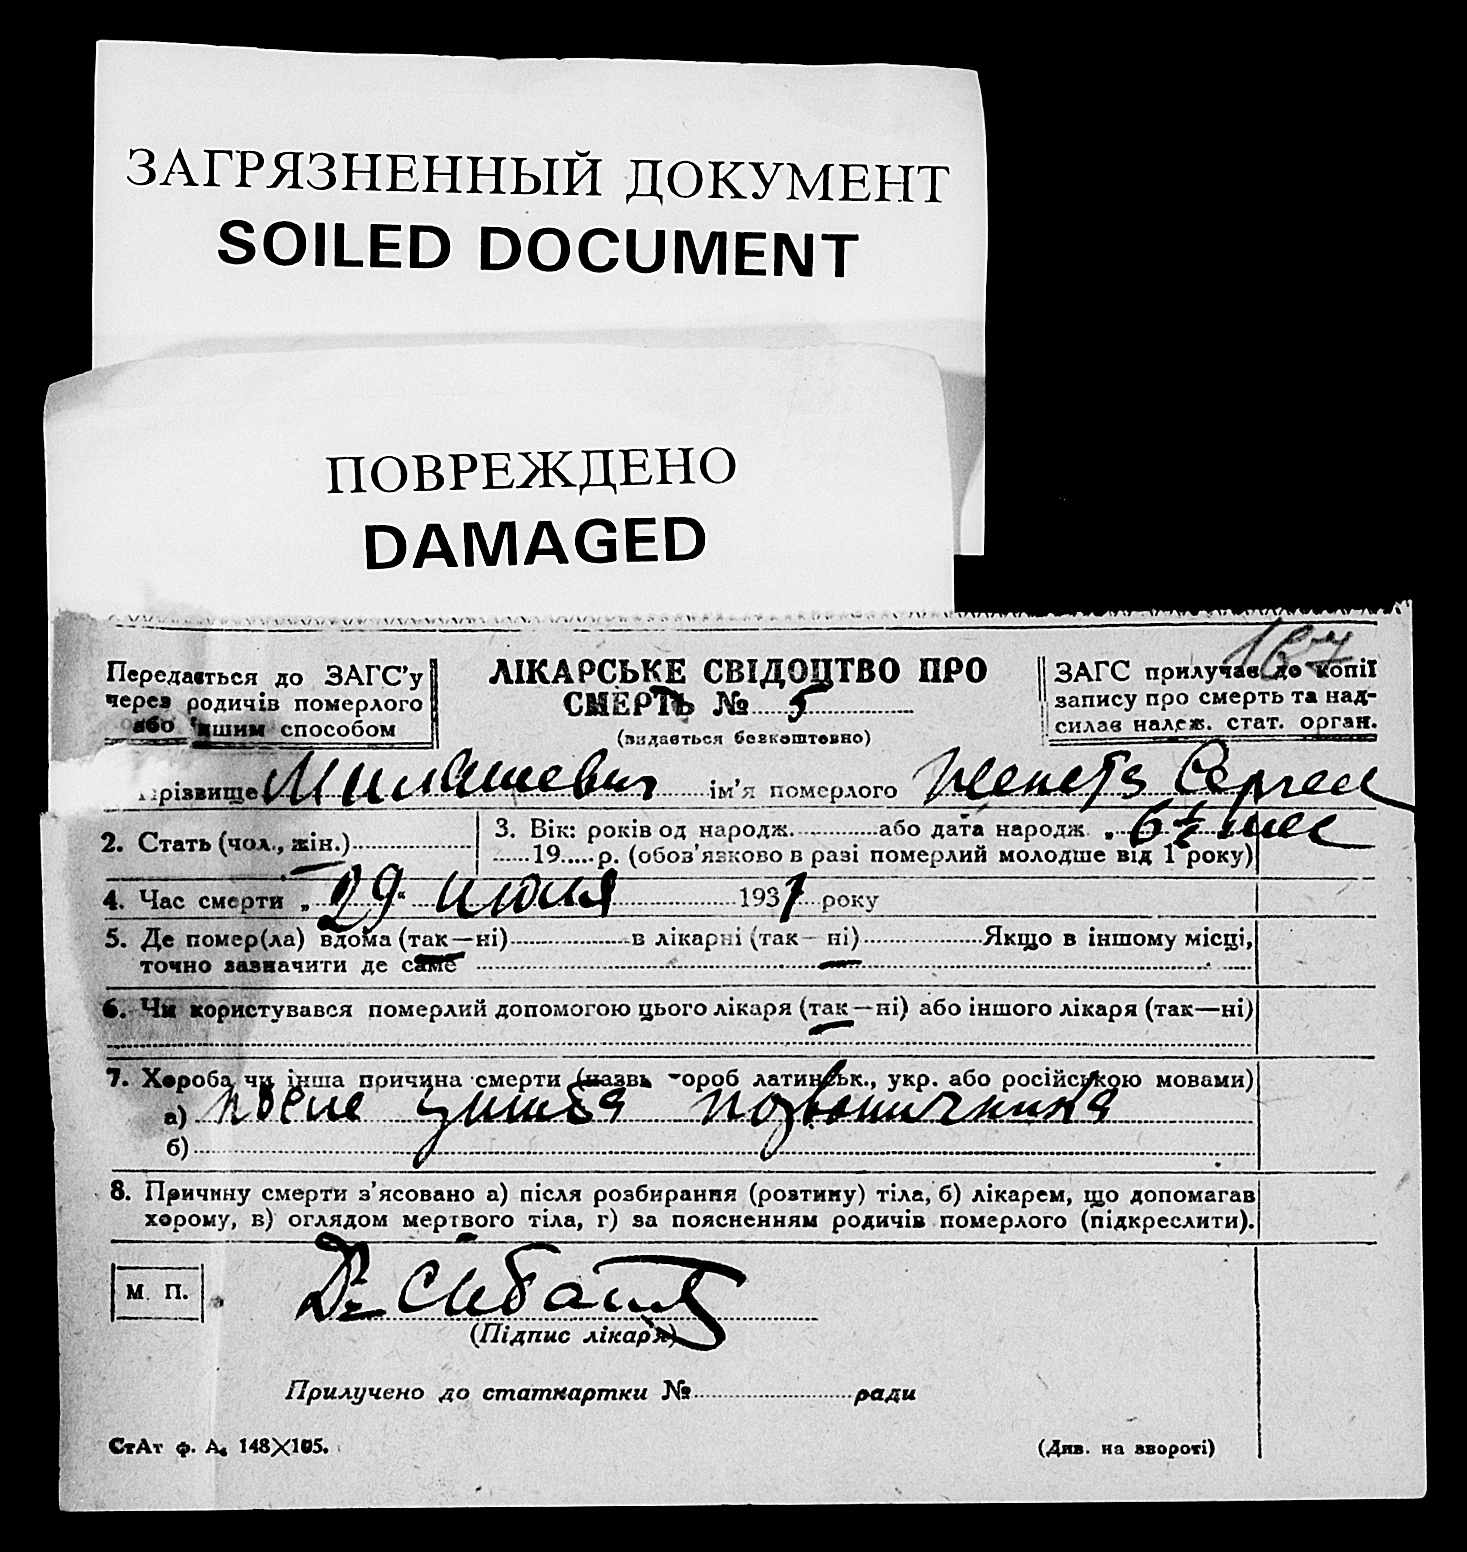 ЗАГРЯЗНЕННЫЙ ДОКУМЕНТ
SOILED DOCUMENT
ПОВРЕЖДЕНО
DAMAGED
167
Передається до ЗАГС'у
через родичів померлого
або іншим способом
ЛІКАРСЬКЕ СВІДОЦТВО ПРО
СМЕРТЬ № 5
(видається безкоштовно)
ЗАГС прилучає до копії
запису про смерть та над-
силає належ. стат. орган.
Прізвище ім'я померлого Сергея
2. Стать (чол., жін.)
3. Вік: років од народж. або дата народж. „ 6½ мес
19 р. (обов'язково в разі померлий молодше від 1 року)
4. Час смерти „ 29 “ июня 1937 року
5. Де помер(ла) вдома (так—ні) в лікарні (так—ні) Якщо в іншому місці,
точно зазначити де саме
6. Чи користувався померлий допомогою цього лікаря (так—ні) або іншого лікаря (так—ні)
7. Хороба чи інша причина смерти (назв хороб латинськ., укр. або російською мовами)
а) после ушиба позвоничника
б)
8. Причину смерти з'ясовано а) після розбирання (розтину) тіла, б) лікарем, що допомагав
хорому, в) оглядом мертвого тіла, г) за поясненням родичів померлого (підкреслити).
М. П.
(Підпис лікаря)
Прилучено до статкартки № ради
СтАт ф. А₆ 148×105.
(Див. на звороті)